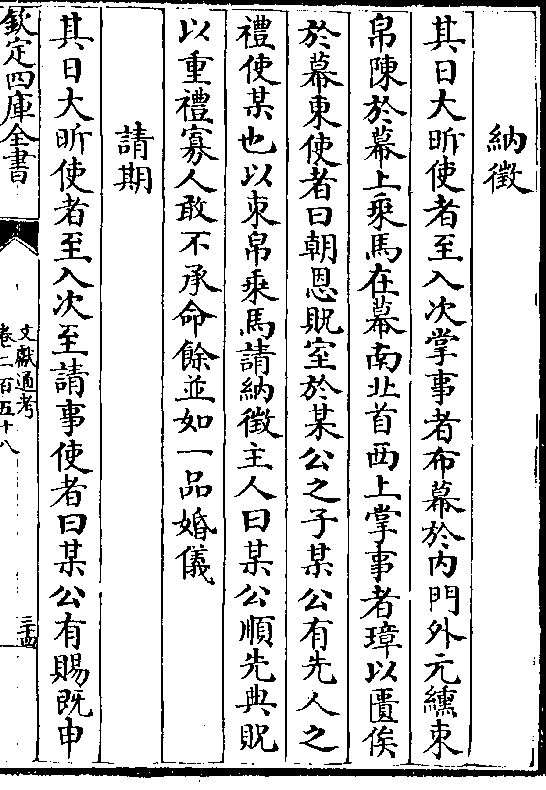 納徴
其日大昕使者至入次掌事者布幕於内門外元纁束
帛陳於幕上乗馬在幕南北首西上掌事者璋以匱俟
於幕東使者曰朝恩貺室於某公之子某公有先人之
禮使某也以束帛乗馬請納徴主人曰某公順先典貺
以重禮寡人敢不承命餘並如一品婚儀
請期
其日大昕使者至入次至請事使者曰某公有賜既申
欽定四庫全書
文獻通考
卷二百五十八
三十四